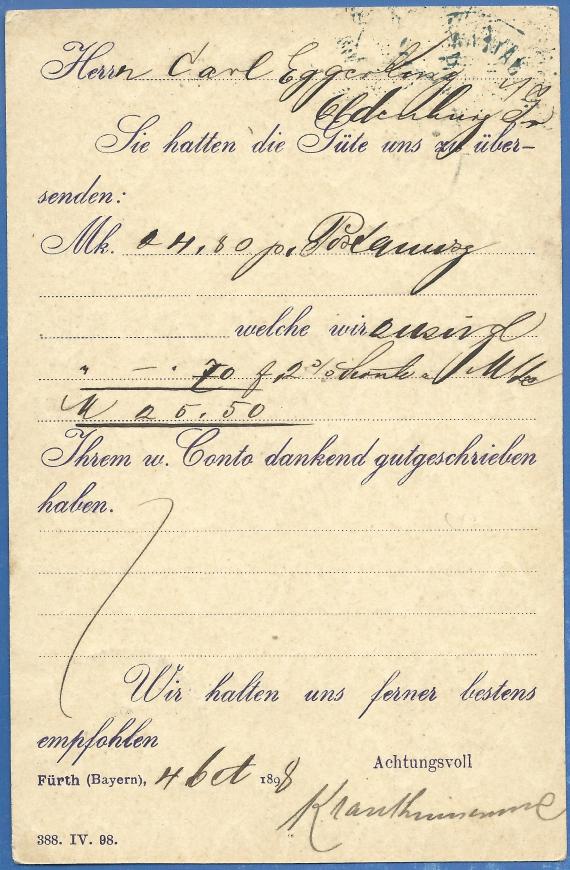 Herrn Carl Eggerking
Oldenburg i/Gr
Sie hatten die Güte uns zu über-
senden:
Mk. 24,80 p. Postanwsg
welche wir
" — . 70 f. 2 %
M 25.50
Ihrem w. Conto dankend gutgeschrieben
haben.
Wir halten uns ferner bestens
empfohlen
Achtungsvoll
Fürth (Bayern), 4 Oct 1898
388. IV. 98.